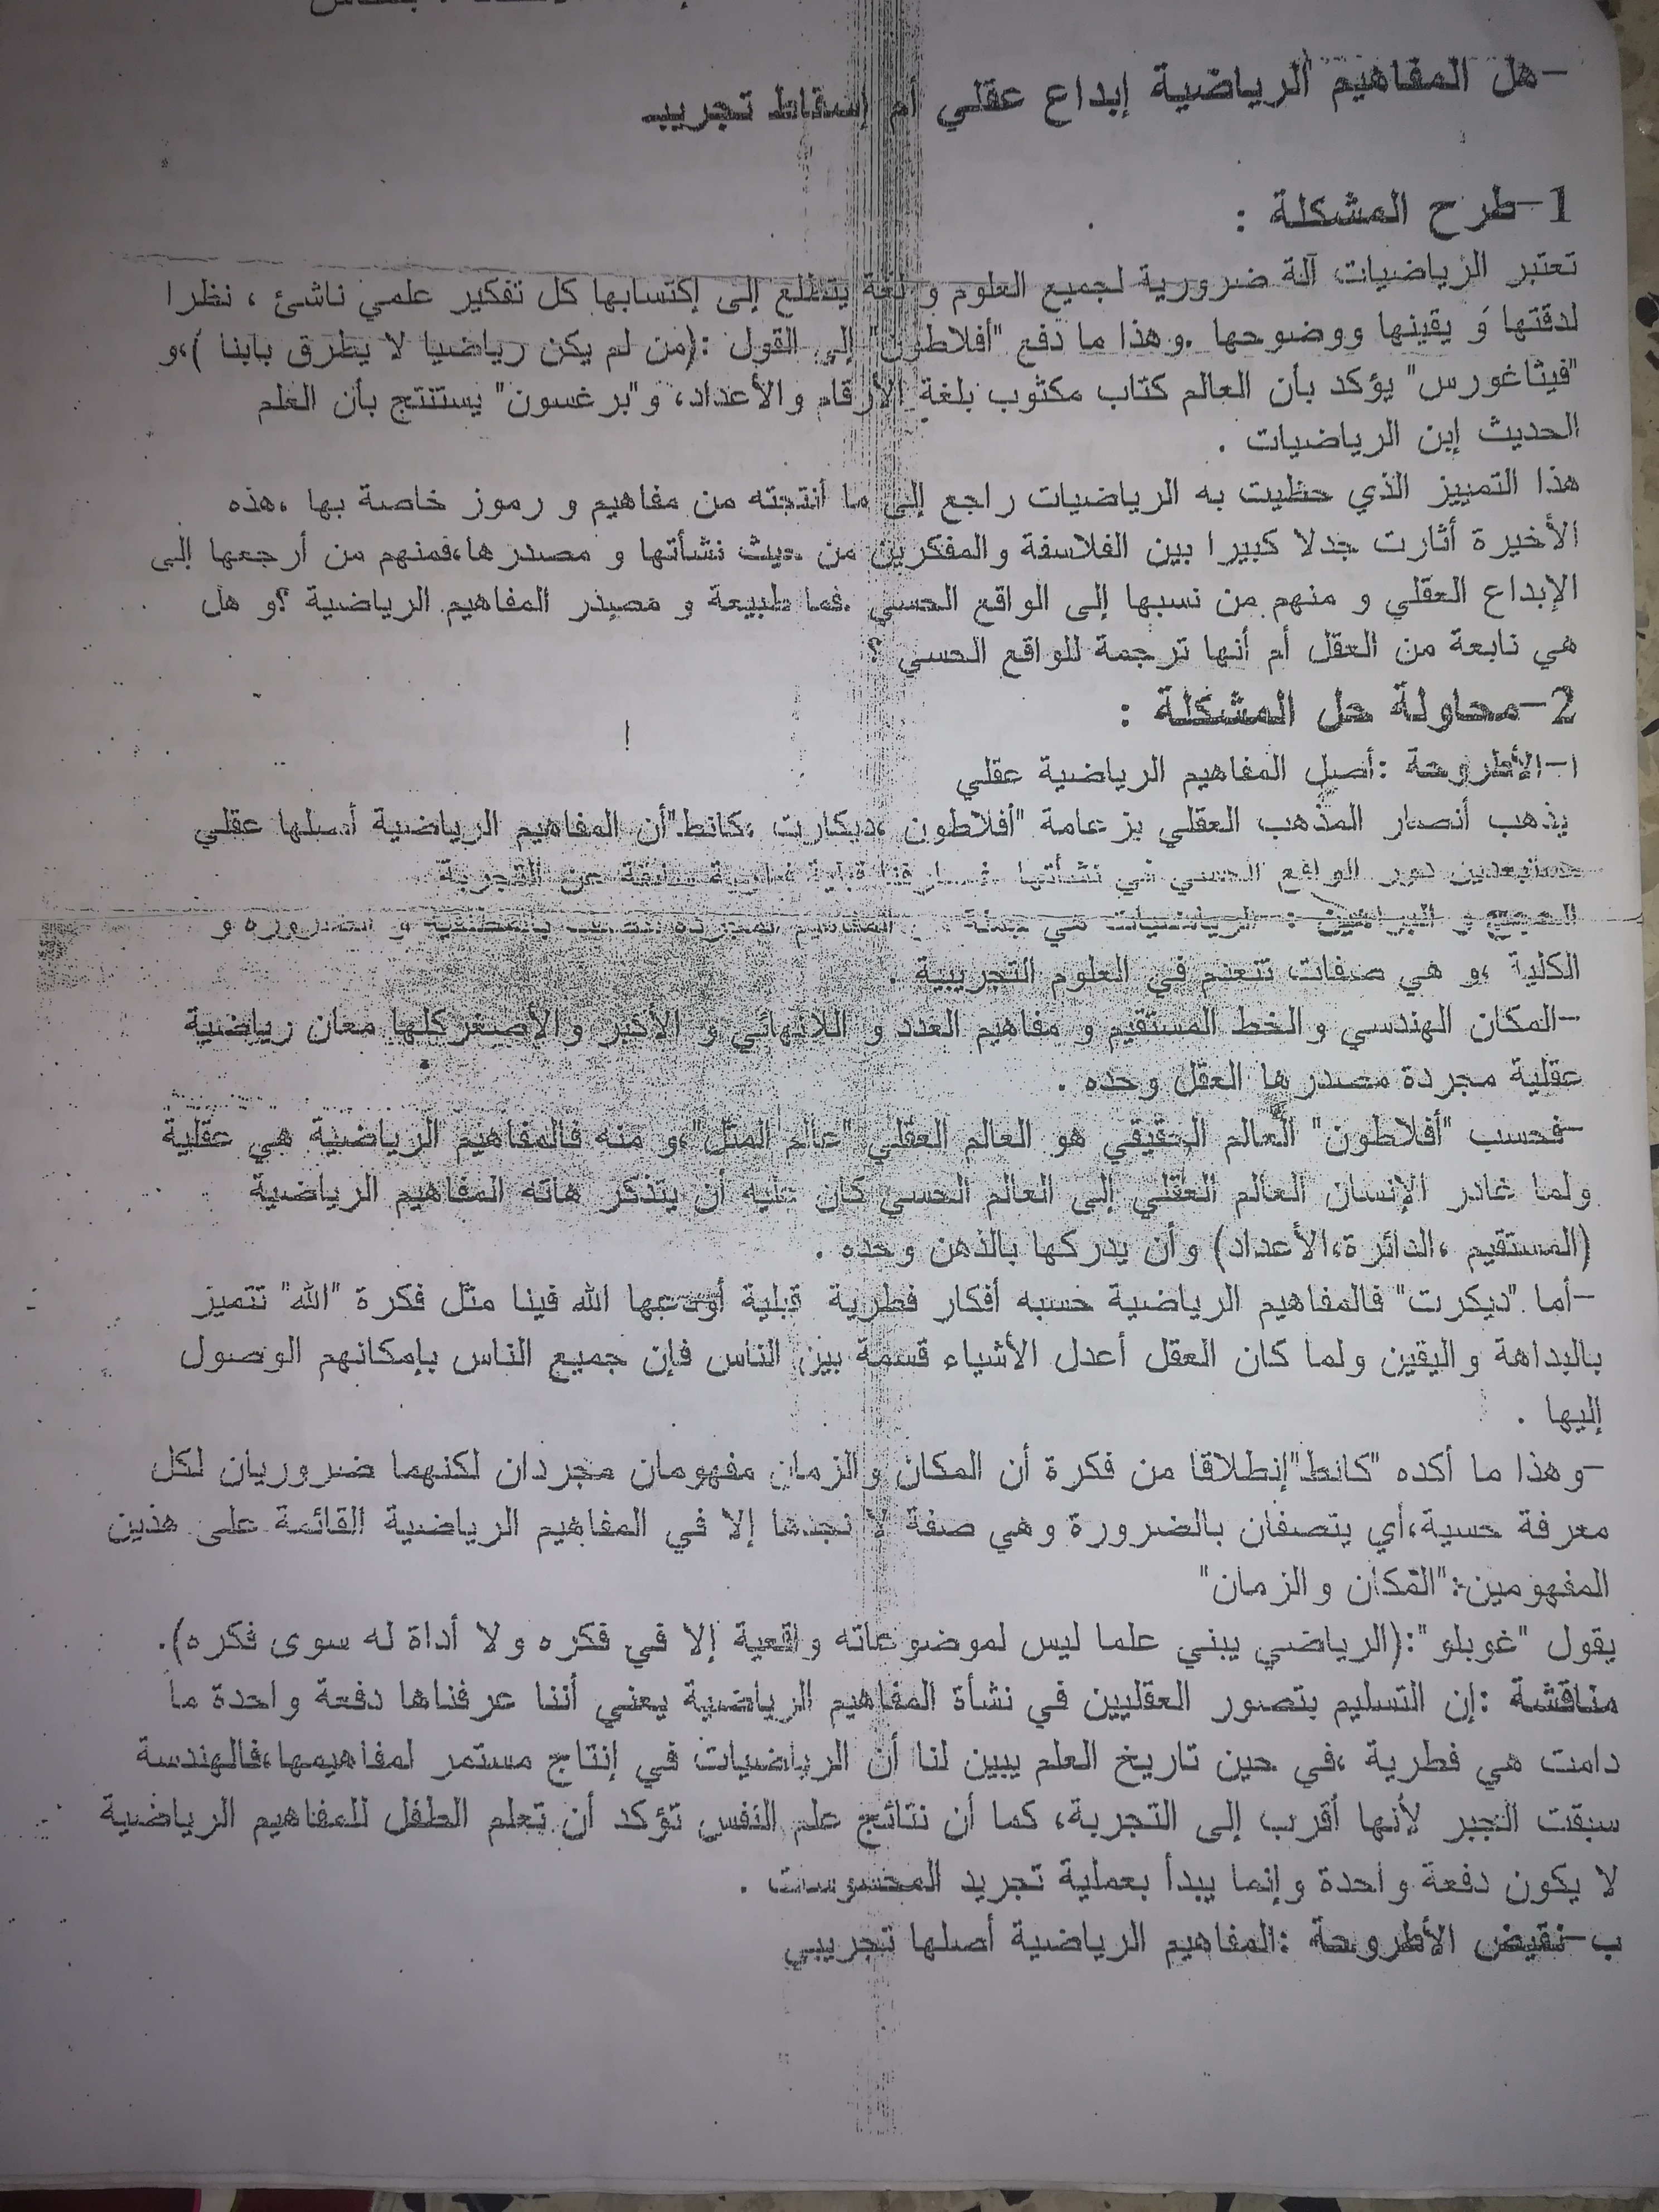 -هل المفاهيم الرياضية إبداع عقلي أم إسقاط تجريب
1-طرح المشكلة :
تعتبر الرياضيات آلة ضرورية لجميع العلوم و لغة يتطلع إلى إكتسابها كل تفكير علمي ناشئ ، نظرا
لدقتها و يقينها ووضوحها .وهذا ما دفع "أفلاطون" إلى القول :(من لم يكن رياضيا لا يطرق بابنا )،و
"فيثاغورس" يؤكد بأن العالم كتاب مكتوب بلغة الأرقام والأعداد، و"برغسون" يستنتج بأن العلم
الحديث إبن الرياضيات .
هذا التمييز الذي حظيت به الرياضيات راجع إلى ما أنتجته من مفاهيم و رموز خاصة بها ،هذه
الأخيرة أثارت جدلا كبيرا بين الفلاسفة والمفكرين من حيث نشأتها و مصدرها،فمنهم من أرجعها إلى
الإبداع العقلي و منهم من نسبها إلى الواقع الحسي .فما طبيعة و مصدر المفاهيم الرياضية ؟و هل
هي نابعة من العقل أم أنها ترجمة للواقع الحسي ؟
2-محاولة حل المشكلة :
ا-الأطروحة :أصل المفاهيم الرياضية عقلي
يذهب أنصار المذهب العقلي بزعامة "أفلاطون ،ديكارت ،كانط"أن المفاهيم الرياضية أصلها عقلي
مستبعدين دور الواقع الحسي في نشأتها قبلية فطرية سابقة عن التجربة
الحجج و البراهين : الرياضيات هي جملة من المفاهيم المجردة و الضرورة و
الكلية ،و هي صفات تنعدم في العلوم التجريبية .
-المكان الهندسي والخط المستقيم و مفاهيم العدد و اللانهائي و الأكبر والأصغر كلها معان رياضية
عقلية مجردة مصدرها العقل وحده .
-فحسب "أفلاطون" العالم الحقيقي هو العالم العقلي "عالم المثل"،و منه فالمفاهيم الرياضية هي عقلية
ولما غادر الإنسان العالم العقلي إلى العالم الحسي كان عليه أن يتذكر هاته المفاهيم الرياضية
(المستقيم ،الدائرة،الأعداد) وأن يدركها بالذهن وحده .
-أما "ديكرت" فالمفاهيم الرياضية حسبه أفكار فطرية قبلية أودعها الله فينا مثل فكرة "الله" تتميز
بالبداهة واليقين ولما كان العقل أعدل الأشياء قسمة بين الناس فإن جميع الناس بإمكانهم الوصول
إليها .
-وهذا ما أكده "كانط"إنطلاقا من فكرة أن المكان والزمان مفهومان مجردان لكنهما ضروريان لكل
معرفة حسية،أي يتصفان بالضرورة وهي صفة لا نجدها إلا في المفاهيم الرياضية القائمة على هذين
المفهومين:"المكان والزمان"
يقول "غوبلو ":(الرياضي يبني علما ليس لموضوعاته واقعية إلا في فكره ولا أداة له سوى فكره).
مناقشة :إن التسليم بتصور العقليين في نشأة المفاهيم الرياضية يعني أننا عرفناها دفعة واحدة ما
دامت هي فطرية ،في حين تاريخ العلم يبين لنا أن الرياضيات في إنتاج مستمر لمفاهيمها،فالهندسة
سبقت الجبر لأنها أقرب إلى التجربة، كما أن نتائج علم النفس تؤكد أن تعلم الطفل للمفاهيم الرياضية
لا يكون دفعة واحدة وإنما يبدأ بعملية تجريد المحسوسات .
ب-نقيض الأطروحة :المفاهيم الرياضية أصلها تجريبي